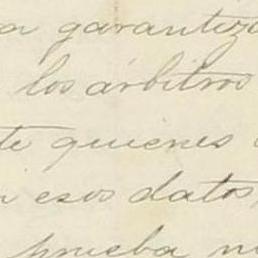 a garantiz
los árbitros
te quienes
esos datos,
prueba n